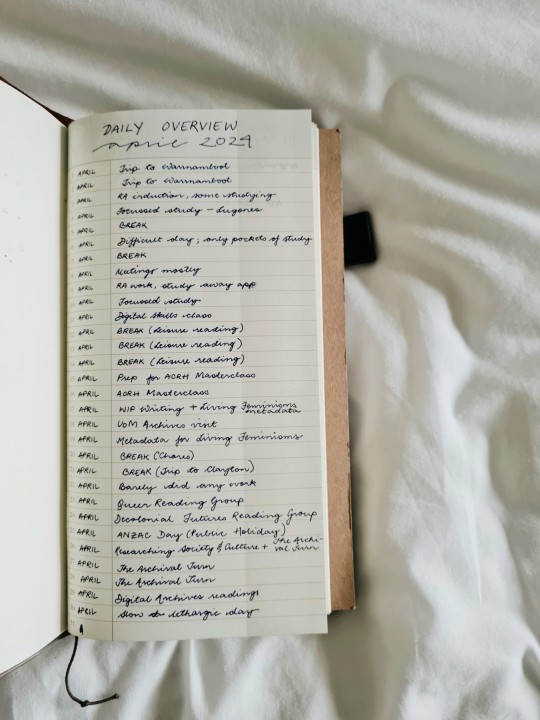 DAILY OVERVIEW
april 2024
APRIL Trip to Warrnambool
APRIL Trip to Warrnambool
APRIL RA induction, some studying
APRIL Focussed study - Lugones
APRIL BREAK
APRIL Difficult day; only pockets of study
APRIL BREAK
APRIL Meetings mostly
APRIL RA work, study away app
APRIL Focussed study
APRIL Digital skills class
APRIL BREAK (Leisure reading)
APRIL BREAK (Leisure reading)
APRIL BREAK (Leisure reading)
APRIL Prep for ACRH Masterclass
APRIL ACRH Masterclass
APRIL WIP Writing + Living Feminisms metadata
APRIL UoM Archives visit
APRIL Metadata for Living Feminisms
APRIL BREAK (Chores)
APRIL BREAK (Trip to Clayton)
APRIL Barely did any work
APRIL Queer Reading Group
APRIL Decolonial Futures Reading Group
APRIL ANZAC Day (Public Holiday)
APRIL Researching Society & Culture + The Archival Turn
APRIL The Archival Turn
APRIL The Archival Turn
APRIL Digital Archives readings
APRIL Slow & lethargic day